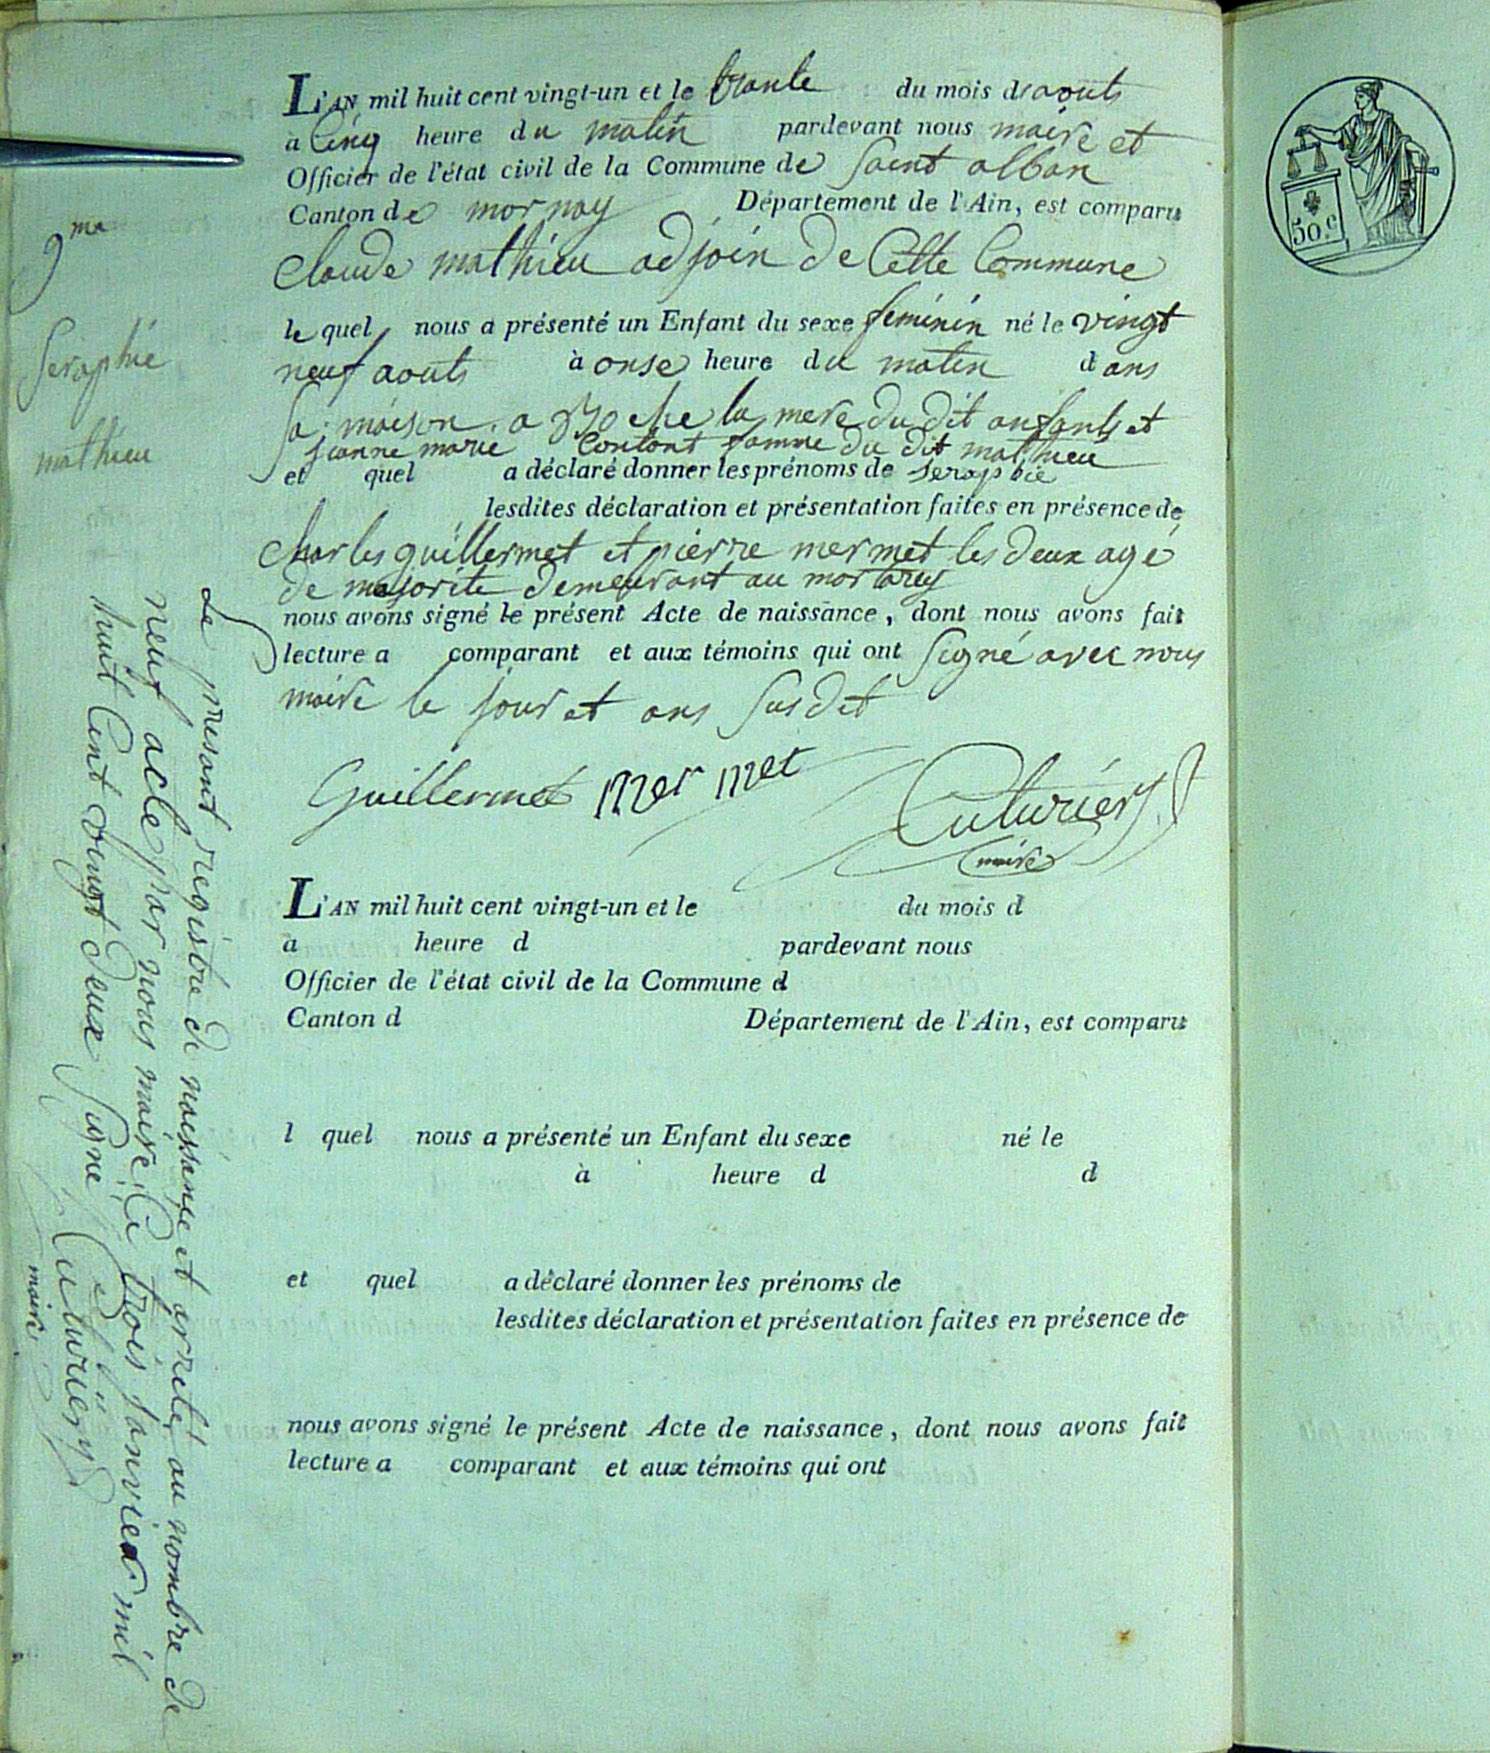 L'AN mil huit cent vingt-un et le trante du mois d'aouts
à Cinq heure du matin pardevant nous maire et
Officier de l'état civil de la Commune de Saint alban
Canton de mornay Département de l'Ain, est comparu
claude mathieu adjoin de Cette Commune
le quel nous a présenté un Enfant du sexe feminin né le vingt
neuf aouts à onse heure du matin dans
sa maison a la mere du dit anfants et
jeanne marie Contant famme du dit mathieu
et quel a déclaré donner les prénoms de seraphie
lesdites déclaration et présentation faites en présence de
charles guillermet et pierre mermet les deux agé
de majorite demeurant au mortarey
nous avons signé le présent Acte de naissance, dont nous avons fait
lecture a comparant et aux témoins qui ont Signé avec nous
maire le jour et ans Susdit
Guillermet mermet Cuturier
maire
9me
Seraphie
mathieu
L'AN mil huit cent vingt-un et le du mois d
a heure d pardevant nous
Officier de l'état civil de la Commune d
Canton d Département de l'Ain, est comparu
l quel nous a présenté un Enfant du sexe né le
à heure d d
et quel a déclaré donner les prénoms de
lesdites déclaration et présentation faites en présence de
nous avons signé le présent Acte de naissance, dont nous avons fait
lecture a comparant et aux témoins qui ont
Le presant registre de naissance et arreté au nombre de
neuf acte par nous maire Ce trois janvier mil
huit Cent vingt deux Signé Cuturier
maire
50 c.